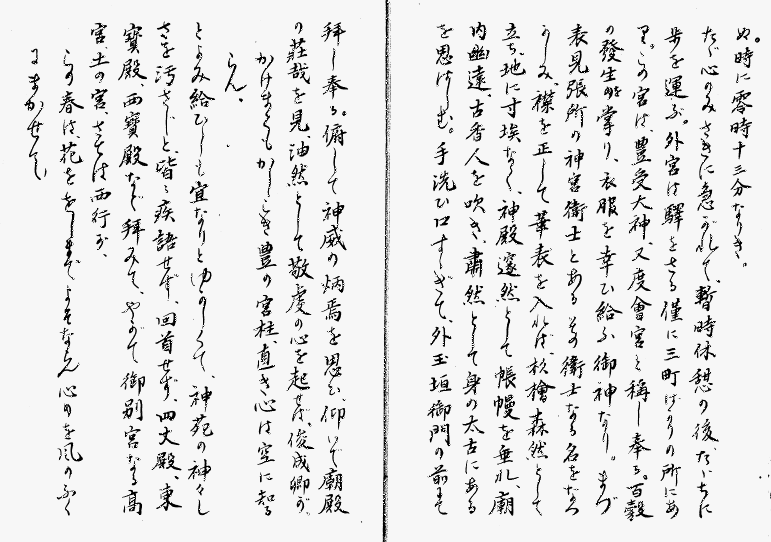 ぬ。時に零時十三分なりき。
たゞ心のみさきに急がれて、暫時休憩の後、たゞちに
歩を運ぶ。外宮は驛をさる僅に三町ばかりの所にあ
り。この宮は、豊受大神、又度會宮と稱し奉る。百穀
の發生を掌り、衣服を幸ひ給ふ御神なり。まづ
表見張所の神宮衛士とあるその衛士なる名をなつ
かしみ、襟を正して華表を入れば、杉檜森然として
立ち、地に寸埃なく、神殿邃然として帳幔を垂れ、廟
内幽遠、古香人を吹き、肅然として身の太古にある
を思はしむ。手洗ひ口すゝぎて、外玉垣御門の前にて
拜し奉る。俯して神威の炳焉を思ひ、仰いで廟殿
の莊哉を見、油然として敬虔の心を起せば、俊成卿が、
かけまくもかしこき豊の宮柱、直き心は空に知る
らん。
とよみ給ひしも宜なりとゆかしくて、神苑の神々し
さを汚さじと、皆々疾語せず、回首せず、四丈殿、東
寶殿、西寶殿など拜みて、やがて御別宮なる高
宮、土の宮、さては西行が、
この春は花ををしまでよそならん心のを風のふく
にまかせて